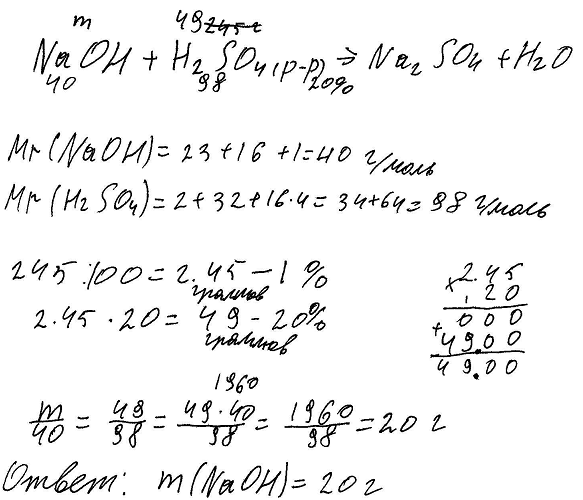 m 49 245 г
NaOH + H2SO4 (р-р) ⇒ Na2SO4 + H2O
40 98 20%
Mr(NaOH) = 23 + 16 + 1 = 40 г/моль
Mr(H2SO4) = 2 + 32 + 16·4 = 34 + 64 = 98 г/моль
245 : 100 = 2.45 - 1 %
граммов
2.45 · 20 = 49 - 20%
граммов
× 2.45
.20
+ 000
49.00
49.00
1960
m/40 = 49/98 = 49·40/98 = 1960/98 = 20 г
Ответ: m(NaOH) = 20 г